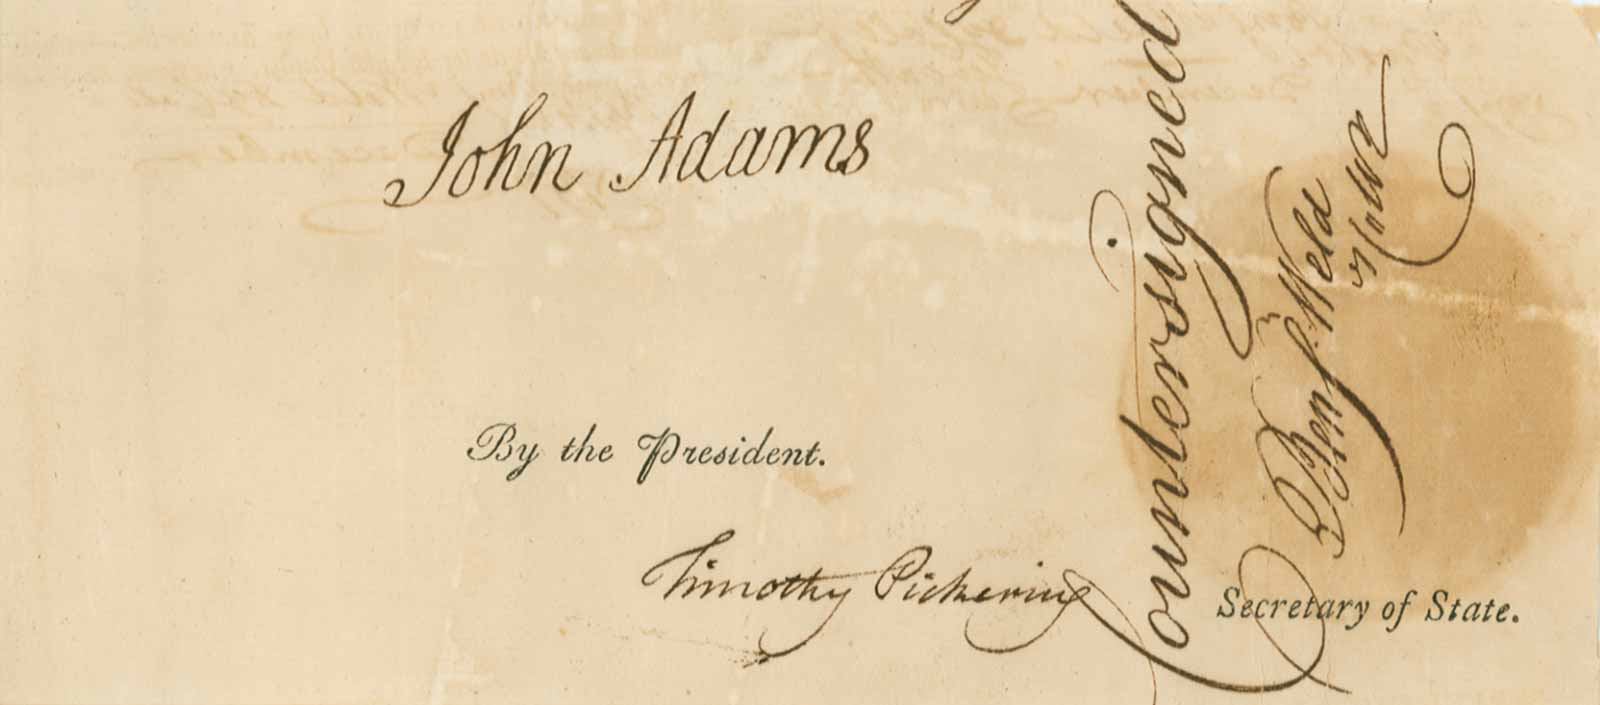 John Adams
By the President.
Timothy Pickering
Secretary of State.
Countersigned
Benj. Weld